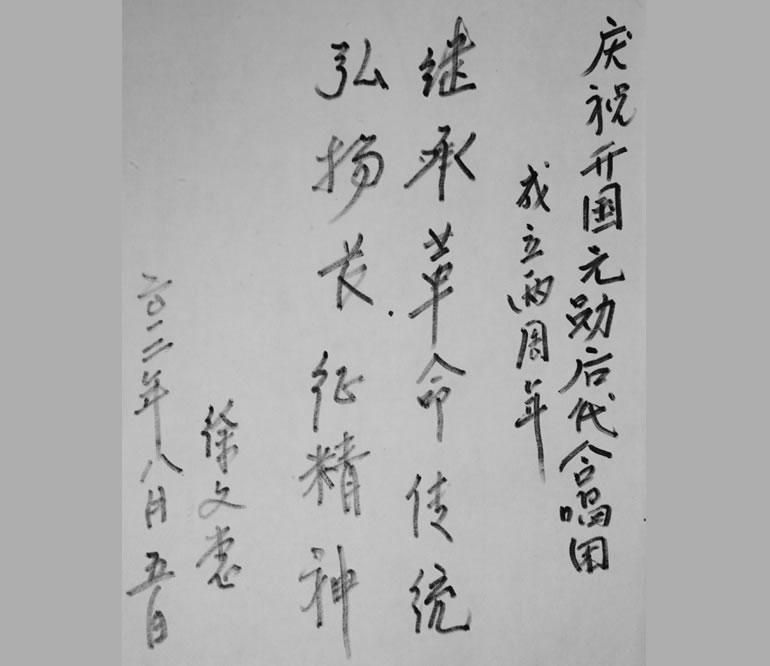 庆祝开国元勋后代合唱团
成立两周年
继承革命传统
弘扬长征精神
徐文惠
二〇一二年八月五日